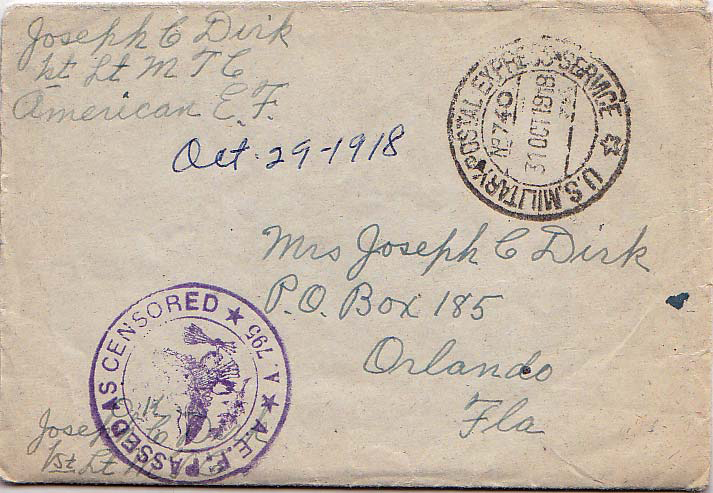 Joseph C Dirk
1st Lt M T C
American E.F.
Oct. 29-1918
U.S. MILITARY POSTAL EXPRESS SERVICE
No 740
31 OCT 1918
Mrs Joseph C Dirk
P.O. Box 185
Orlando
Fla
A.E.F. PASSED AS CENSORED
A. 795
Joseph C
1st Lt